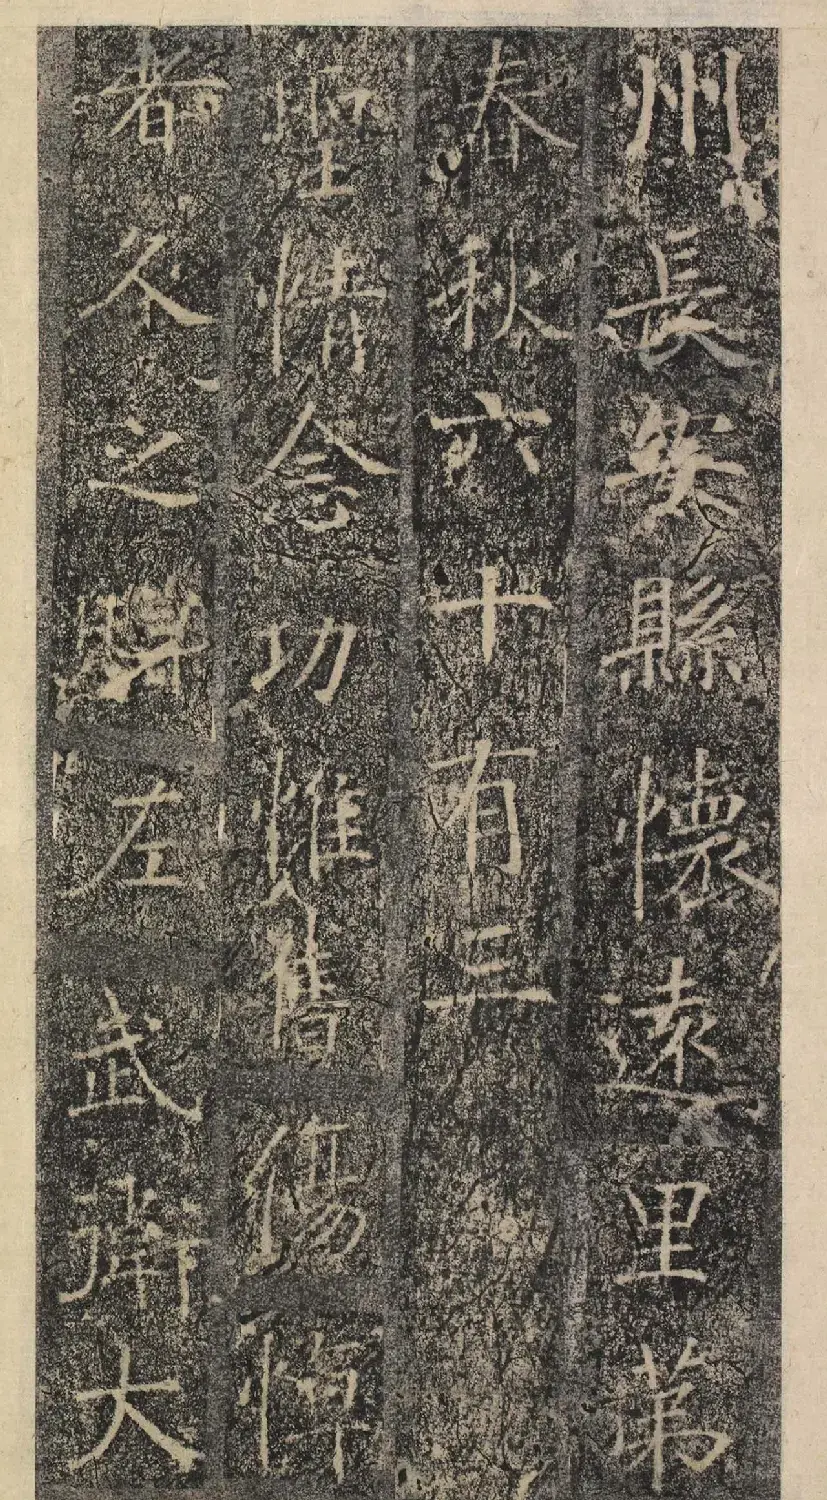 州長安縣懷遠里第
春秋六十有三
聖情念功惟舊傷悼
者久之賻左武衛大